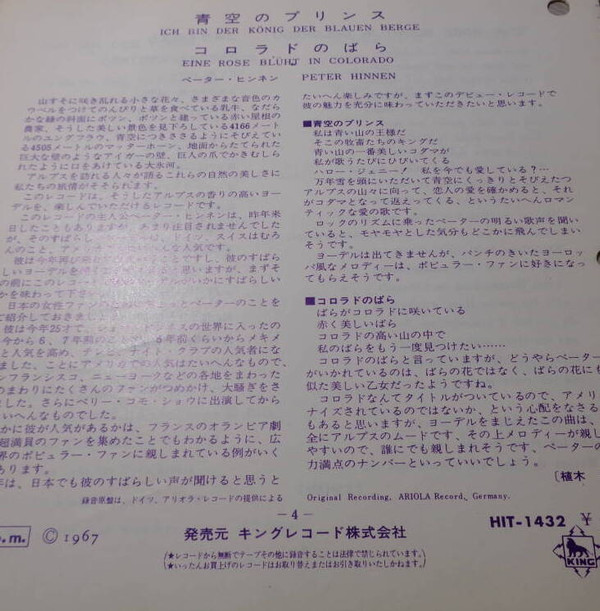 青空のプリンス
ICH BIN DER KÖNIG DER BLAUEN BERGE
コロラドのばら
EINE ROSE BLÜHT IN COLORADO
ペーター・ヒンネン　PETER HINNEN
山すそに咲き乱れる小さな花々、さまざまな音色のカ
ウベルをつけてのんびりと草を食べている乳牛、なだら
かな緑の斜面にポツン、ポツンと建っている赤い屋根の
農家、そうした美しい景色を見下ろしている4166メート
ルのユングフラウ、青空につきささるようにそびえてい
る4505メートルのマッターホーン、地面からたてられた
巨大な壁のようなアイガーの壁、巨人の爪でかきむしら
れたように口をあけている大氷河。
アルプスを訪れる人々が語るこれらの自然の美しさに
私たちの旅情がそそられます。
このレコードは、そうしたアルプスの香りの高いヨー
デルを、楽しんでいただけるレコードです。
このレコードの主人公ペーター・ヒンネンは、昨年来
日したこともありますが、
が、そのすばらしい
ドイツ、スイスはむろ
んのこと、ア
んな人気です。
彼は今年25才で、
の世界に入ったの
今から6、7年前の
年前くらいからメキ
と人気を高め、
・クラブの人気者にな
ました。ことにアメリカでの人気はたいへんなもので、
ンフランシスコ、ニューヨークなどの各地をまわった
のまわりにたくさんのファンがつめかけ、大騒ぎをさ
した。さらにペリー・コモ・ショウに出演してから
いへんなものでした。
かに彼が人気があるかは、フランスのオランピア劇
超満員のファンを集めたことでもわかるように、広
界のポピュラー・ファンに親しまれている例がいく
あります。
年は、日本でも彼のすばらしい声が聞けると思うと
録音原盤は、ドイツ、アリオラ・レコードの提供による
たいへん楽しみですが、まずこのデビュー・レコードで
彼の魅力を充分に味わっていただきたいと思います。
■青空のプリンス
私は青い山の王様だ
そこの牧畜たちのキングだ
青い山の一番美しいコダマが
私が歌うたびにひびいてくる
ハロー・ジェニー？　私を今でも愛している？…
万年雪を頭にいただいて青空にくっきりとそびえたつ
アルプスの山々に向って、恋人の愛を確かめると、それ
がコダマとなって返えってくる、というたいへんロマン
ティックな愛の歌です。
ロックのリズムに乗ったペーターの明るい歌声を聞い
ていると、モヤモヤとした気分もどこかに飛んでしまい
そうです。
ヨーデルは出てきませんが、パンチのきいたヨーロッ
パ風なメロディーは、ポピュラー・ファンに好きになっ
てもらえそうです。
■コロラドのばら
ばらがコロラドに咲いている
赤く美しいばら
コロラドの高い山の中で
私のばらをもう一度見つけたい……
コロラドのばらと言っていますが、どうやらペーター
がいかれているのは、ばらの花ではなく、ばらの花に
似た美しい乙女だったようですね。
コロラドなんてタイトルがついているので、アメリ
ナイズされているのではないか、という心配をなさる
もあると思いますが、ヨーデルをまじえたこの曲は、
全にアルプスのムードです、その上メロディーが親し
やすいので、誰にでも親しまれそうです、ペーターの
力満点のナンバーといっていいでしょう。
〔植木
Original Recording. ARIOLA Record, Germany.
－4－
p.m. © 1967
発売元 キングレコード株式会社
HIT-1432 ¥
KING
(★レコードから無断でテープその他に録音することは法律で禁じられています。)
(★いったんお買上げのレコードはお取り替えまたはお引き取りいたしかねます。)